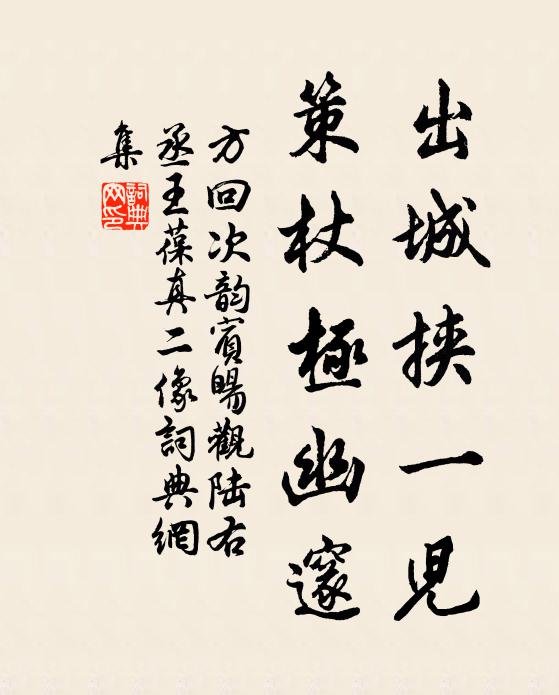 出城挾一児
策杖極幽邃
方回次韵賓暘觀陆右
丞王葆真二像詞典網
集
詞典网印